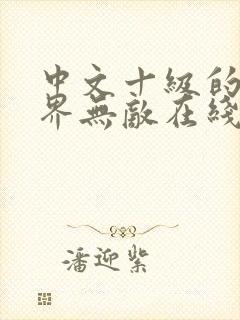 中文十級的
界無敵在綫
潘迎紫